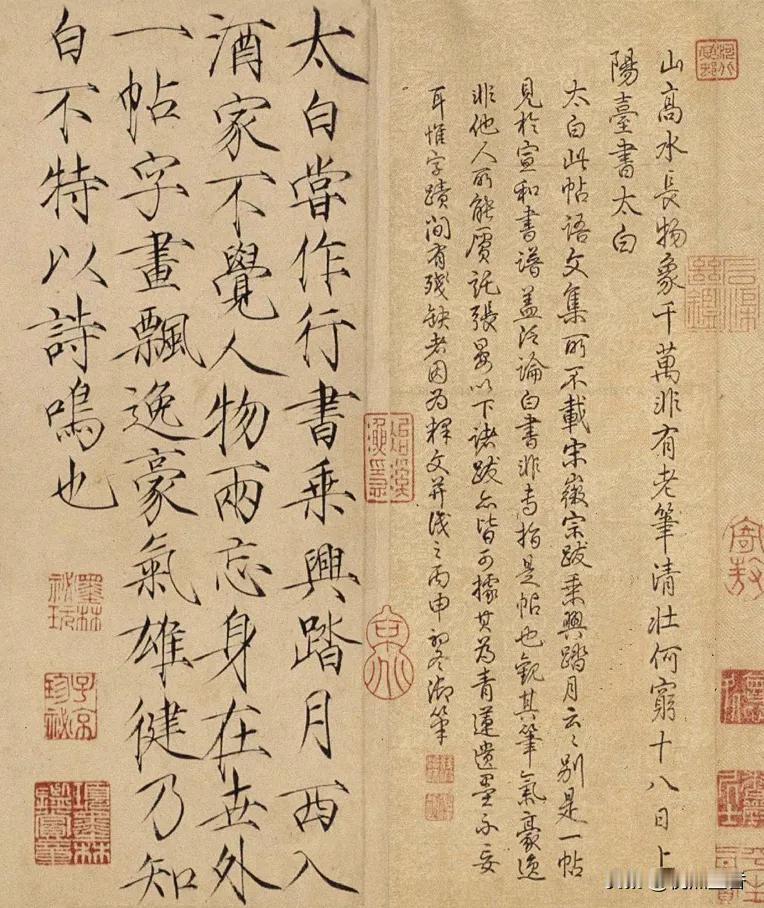 山高水長物象千萬非有老筆清壯何窮十八日上
陽臺書太白
太白此帖語文集所不載宋徽宗跋乘興踏月云云別是一帖
見於宣和書譜蓋泛論白書非專指是帖也觀其筆氣豪逸
非他人所能贗託張晏以下諸跋亦皆可據其為青蓮遺墨不妄
耳惟字蹟間有殘缺者因為釋文并識之丙申初冬御筆
太白嘗作行書乘興踏月西入
酒家不覺人物兩忘身在世外
一帖字畫飄逸豪氣雄健乃知
白不特以詩鳴也
墨林祕玩
子京珍祕
項墨林鑑賞章